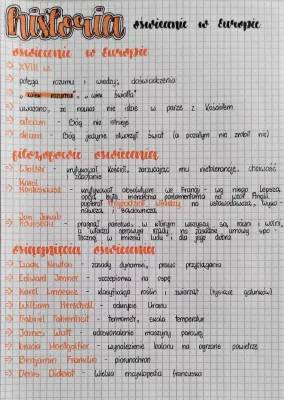 historia oświecenie w Europie
oświecenie w Europie
→ XVIII w.
→ potęga rozumu i wiedzy, doświadczenia
→ "wiek rozumu", "wiek światła"
→ uważano, że nauka nie idzie w parze z Kościołem
→ ateizm - Bóg nie istnieje
→ deizm - Bóg jedynie stworzył świat (a poza tym nie zrobił nic)
filozofowie oświecenia
→ Wolter - krytykował Kościół, zarzucając mu nietolerancję, chciwość
zacofanie
→ Karol
Monteskiusz - krytykował absolutyzm we Francji - wg niego lepszą
opcją była monarchia parlamentarna na wzór Anglii
podział władzy na ustawodawczą, wyko-
nawczą i sądowniczą
→ Jan Jakub
Rousseau - pragnął państwa, w którym wszyscy są równi i wolni,
a władza sprawuje rządy na zasadzie umowy spo-
łecznej w imieniu ludu i dla jego dobra
osiągnięcia oświecenia
→ Izaak Newton - zasady dynamiki, prawo przyciągania
→ Edward Jenner - szczepionka na ospę
→ Karol Linneusz - klasyfikacja roślin i zwierząt (tysiące gatunków)
→ William Herschel - odkrycie Urana
→ Gabriel Fahrenheit - termometr, skala temperatur
→ James Watt - udoskonalenie maszyny parowej
→ bracia Montgolfier - wynalezienie balonu na ogrzane powietrze
→ Benjamin Franklin - piorunochron
→ Denis Diderot - Wielka encyklopedia francuska